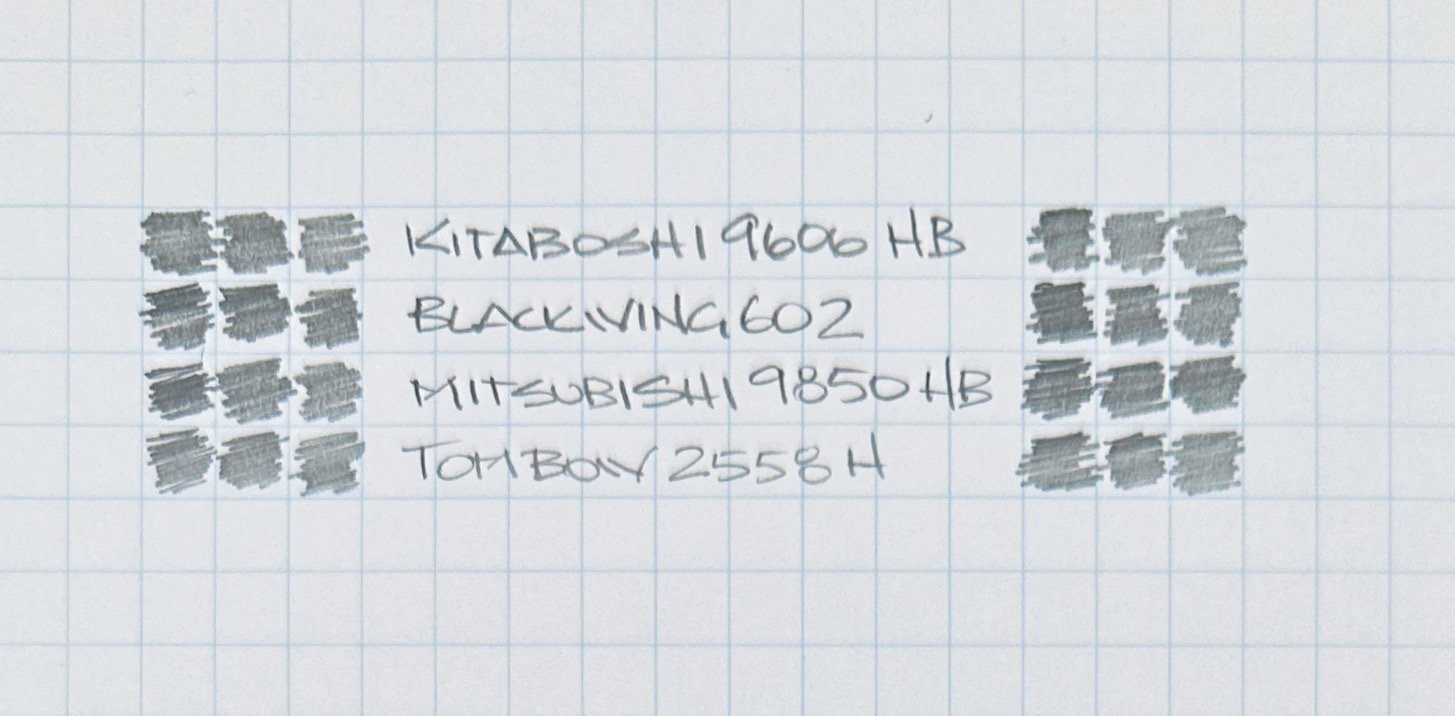 KITABOSHI 9606 HB
BLACKWING 602
MITSUBISHI 9850 HB
TOMBOW 2558 H